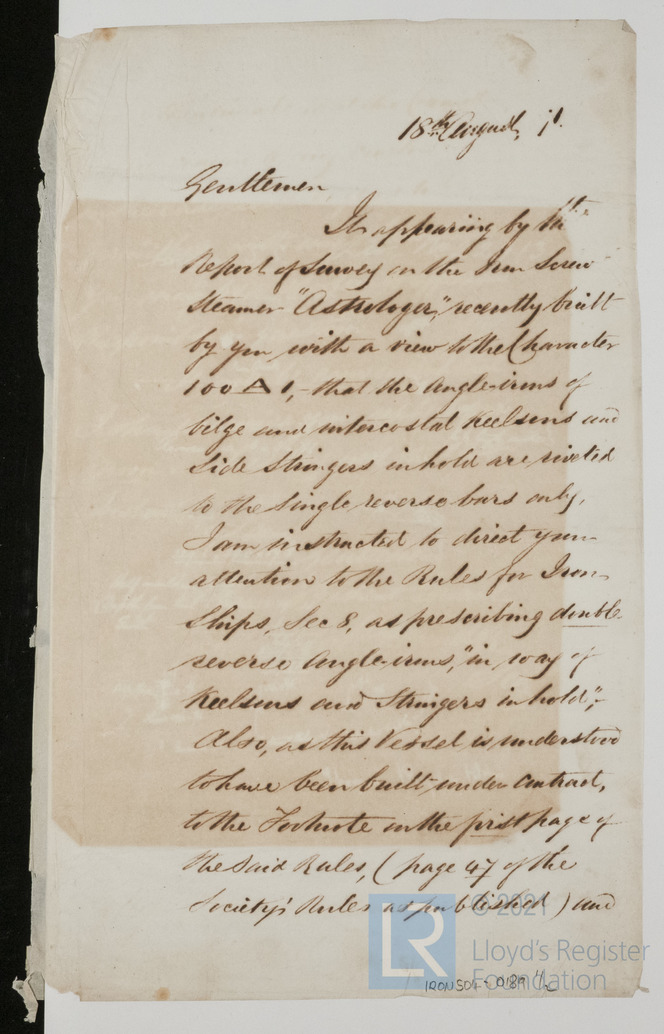 18th August, 71.
Gentlemen
It appearing by the
Report of Survey on the Iron Screw
Steamer "Astrologer", recently built
by you with a view to the Character
100 A 1, - that the Angle-irons of
bilge and intercostal Keelsons and
Side Stringers in hold are riveted
to the Single reverse bars only,
I am instructed to direct your
attention to the Rules for Iron
Ships, Sec 8, as prescribing double
reverse Angle-irons, "in way of
Keelsons and Stringers in hold";-
Also, as this Vessel is understood
to have been built under Contract,
to the Footnote on the first page of
the said Rules, (page 47 of the
Society's Rules as published) and
© 2021
LR Lloyd's Register
Foundation
IRON504-0189 1/2